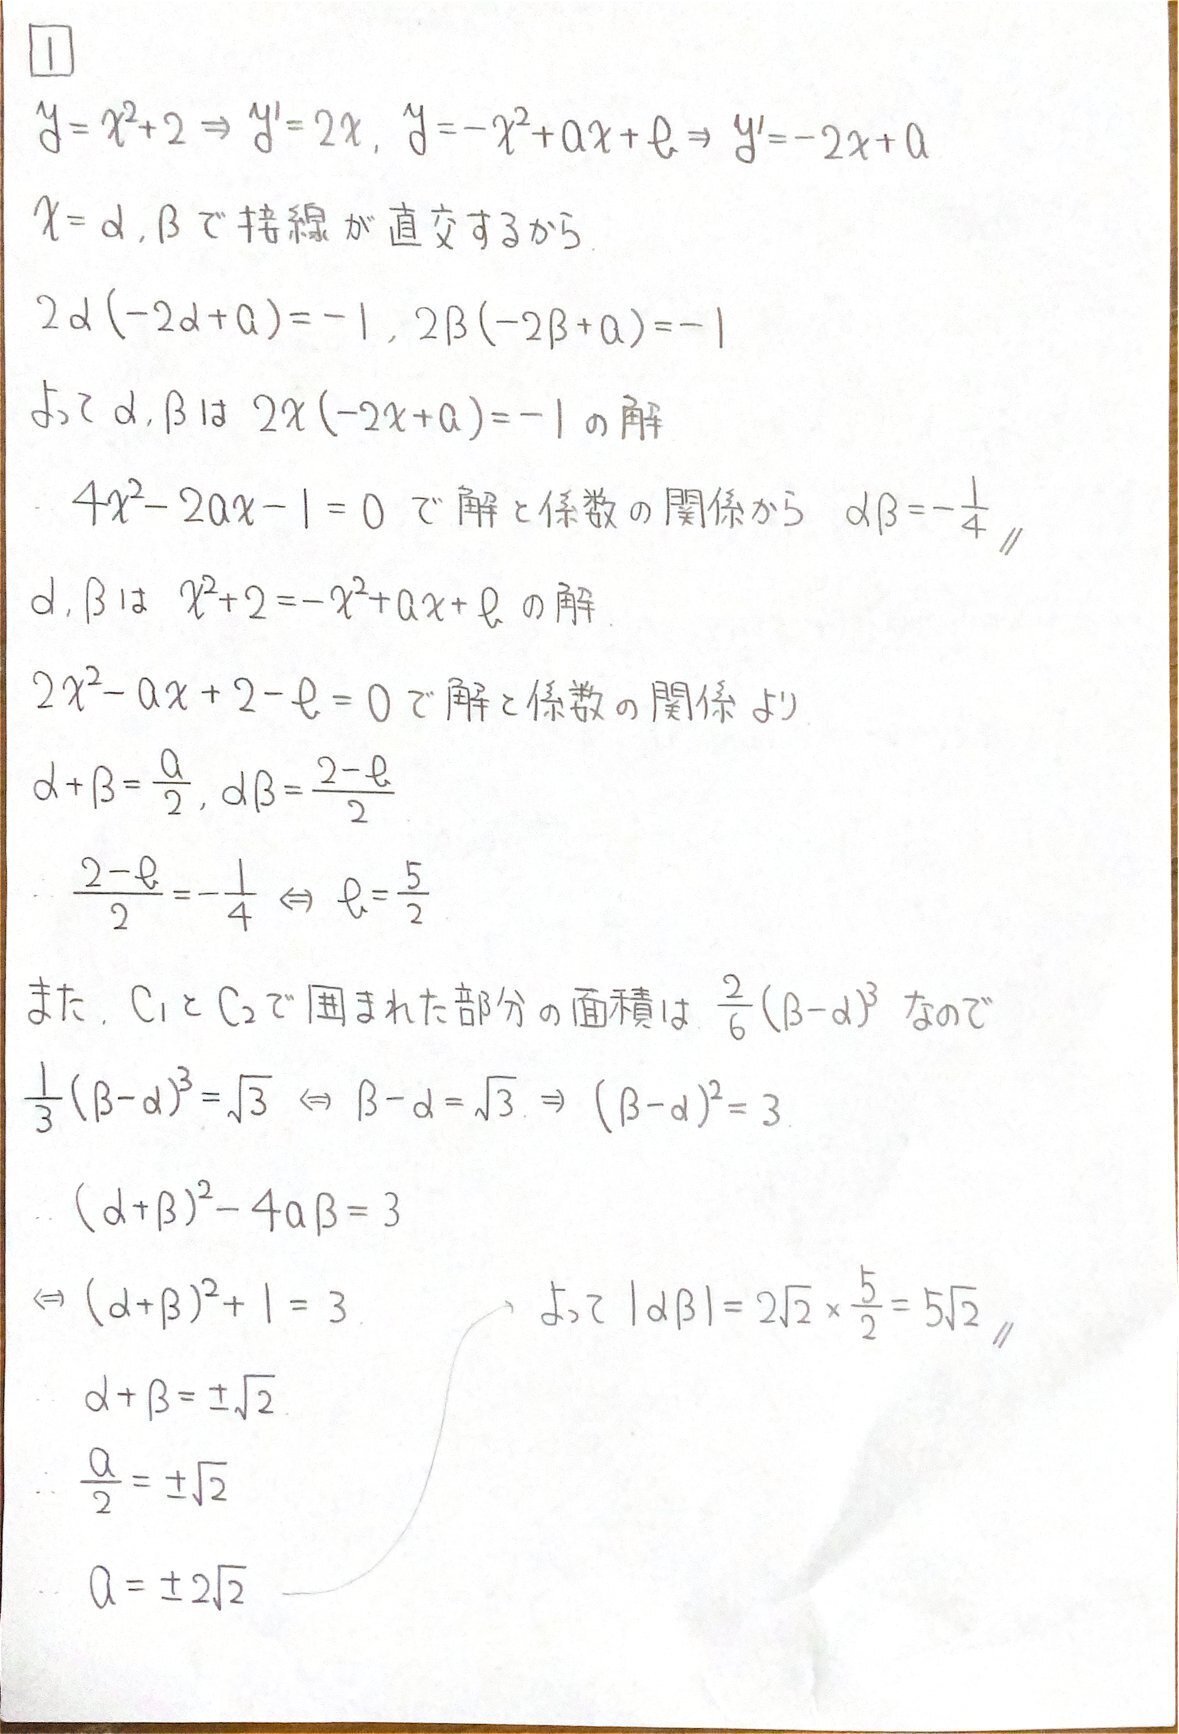 1
y=x²+2 ⇒ y'=2x, y=-x²+ax+b ⇒ y'=-2x+a
x=α,βで接線が直交するから
2α(-2α+a)=-1, 2β(-2β+a)=-1
よってα,βは 2x(-2x+a)=-1 の解
∴ 4x²-2ax-1=0 で解と係数の関係から αβ=-1/4 //
α,βは x²+2=-x²+ax+b の解
2x²-ax+2-b=0で解と係数の関係より
α+β=a/2, αβ=(2-b)/2
∴ (2-b)/2=-1/4 ⇔ b=5/2
また, C₁とC₂で囲まれた部分の面積は 2/6(β-α)³ なので
1/3(β-α)³=√3 ⇔ β-α=√3 ⇒ (β-α)²=3
∴ (α+β)²-4aβ=3
⇔ (α+β)²+1=3
∴ α+β=±√2
∴ a/2=±√2
∴ a=±2√2
よって |αβ|=2√2×5/2=5√2 //